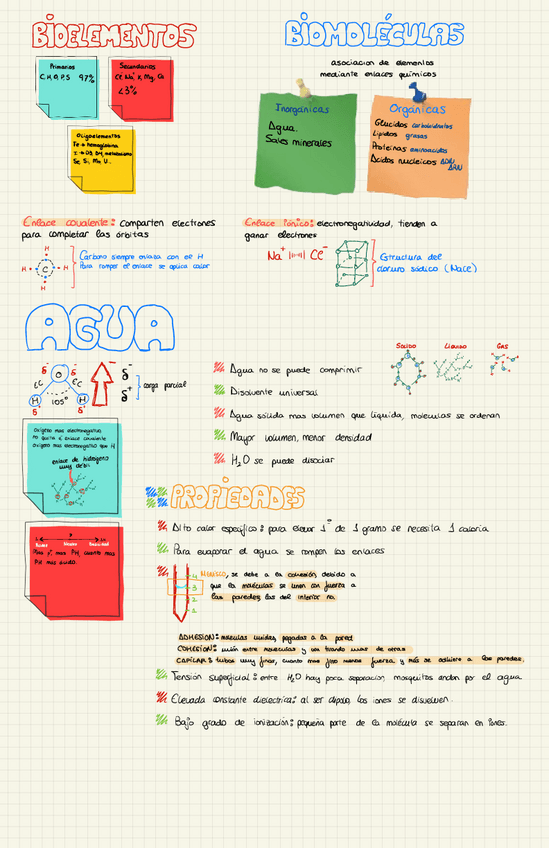 BIOELEMENTOS
Primarios
C,H,O,P,S 97%
Secundarios
Cl, Na, K, Mg, Ca
<3%
Oligoelementos
Fe → hemoglobina
Se, Si, Mn
BIOMOLÉCULAS
asociacion de elementos
mediante enlaces químicos
Inorgánicas
Agua.
Sales minerales
Orgánicas
Glucidos carbohidratos
Lipidos grasas
Proteinas aminoacidos
Acidos nucleicos ADN
ARN
Enlace covalente: Comparten electrones
para completar las órbitas
H
H C H
H
Carbono siempre enlaza con el H
Para romper el enlace se aplica calor
Enlace iónico: electronegatividad, tienden a
ganar electrones
Na+ Cl-
Estructura del
cloruro sódico (NaCl)
AGUA
δ-
O
EC EC
H 105° H
δ+ δ+
δ-
δ+
carga parcial
oxígeno mas electronegativo
oxígeno mas electronegativo que H
enlace de hidrógeno
muy débil
Agua no se puede comprimir
Disolvente universal
Agua sólida mas volumen que líquida, moleculas se ordenan
Mayor volumen, menor densidad
H₂O se puede disociar
SOLIDO
Líquido
GAS
7
Neutro
PH más ácido
PROPIEDADES
Alto calor especifico: para elevar 1° de 1 gramo se necesita 1 caloria
Para evaporar el agua se rompen los enlaces
4
3
2
1
MENISCO, se debe a la cohesión, debido a
que la moléculas se unen con fuerza a
las paredes, las del interior no
ADHESION: moleculas unidas, pegadas a la pared
COHESION: unión entre moleculas y van tirando unas de otras
CAPILAR: tubos muy finos, cuanto mas fino menos fuerza, y más se adhiere a las paredes.
Tensión superficial: entre H₂O hay poca separacion, mosquitos andan por el agua
Elevada constante dielectrica: al ser dipolo, los iones se disuelven.
Bajo grado de ionización: pequeña parte de la molécula se separan en iones.